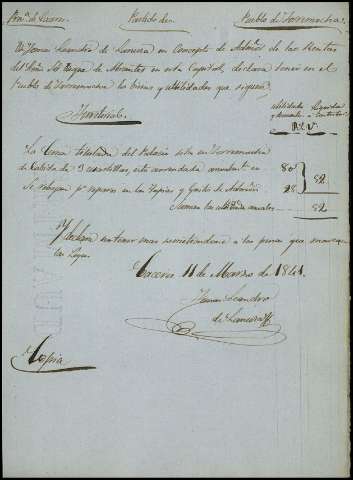 Provª. de Caceres. Partido de Pueblo de Torremocha.
Dn. Juan Leandro de Lumera en Concepto de Admor. de las Rentas
del Sr. Duque de Abrantes en esta Capital, declara tener en el
Pueblo de Torremocha los vienes y utilidades que siguen.
Territorial.
utilidades
Rs. Vn.
La Cerca titulada del Palacio sita en Torremocha
de Cabida de 3 cuartillas, está arrendada anualmte. en 80
Se rebajan pr. reparos en las Tapias y Gastos de Admon. 28 52
Suman las utilidades anuales 52
Y declara no tener mas sometiendose a las penas que marcan
las Leyes.
Caceres 11 de Marzo de 1841.
Juan Leandro
de Lumera
Copia